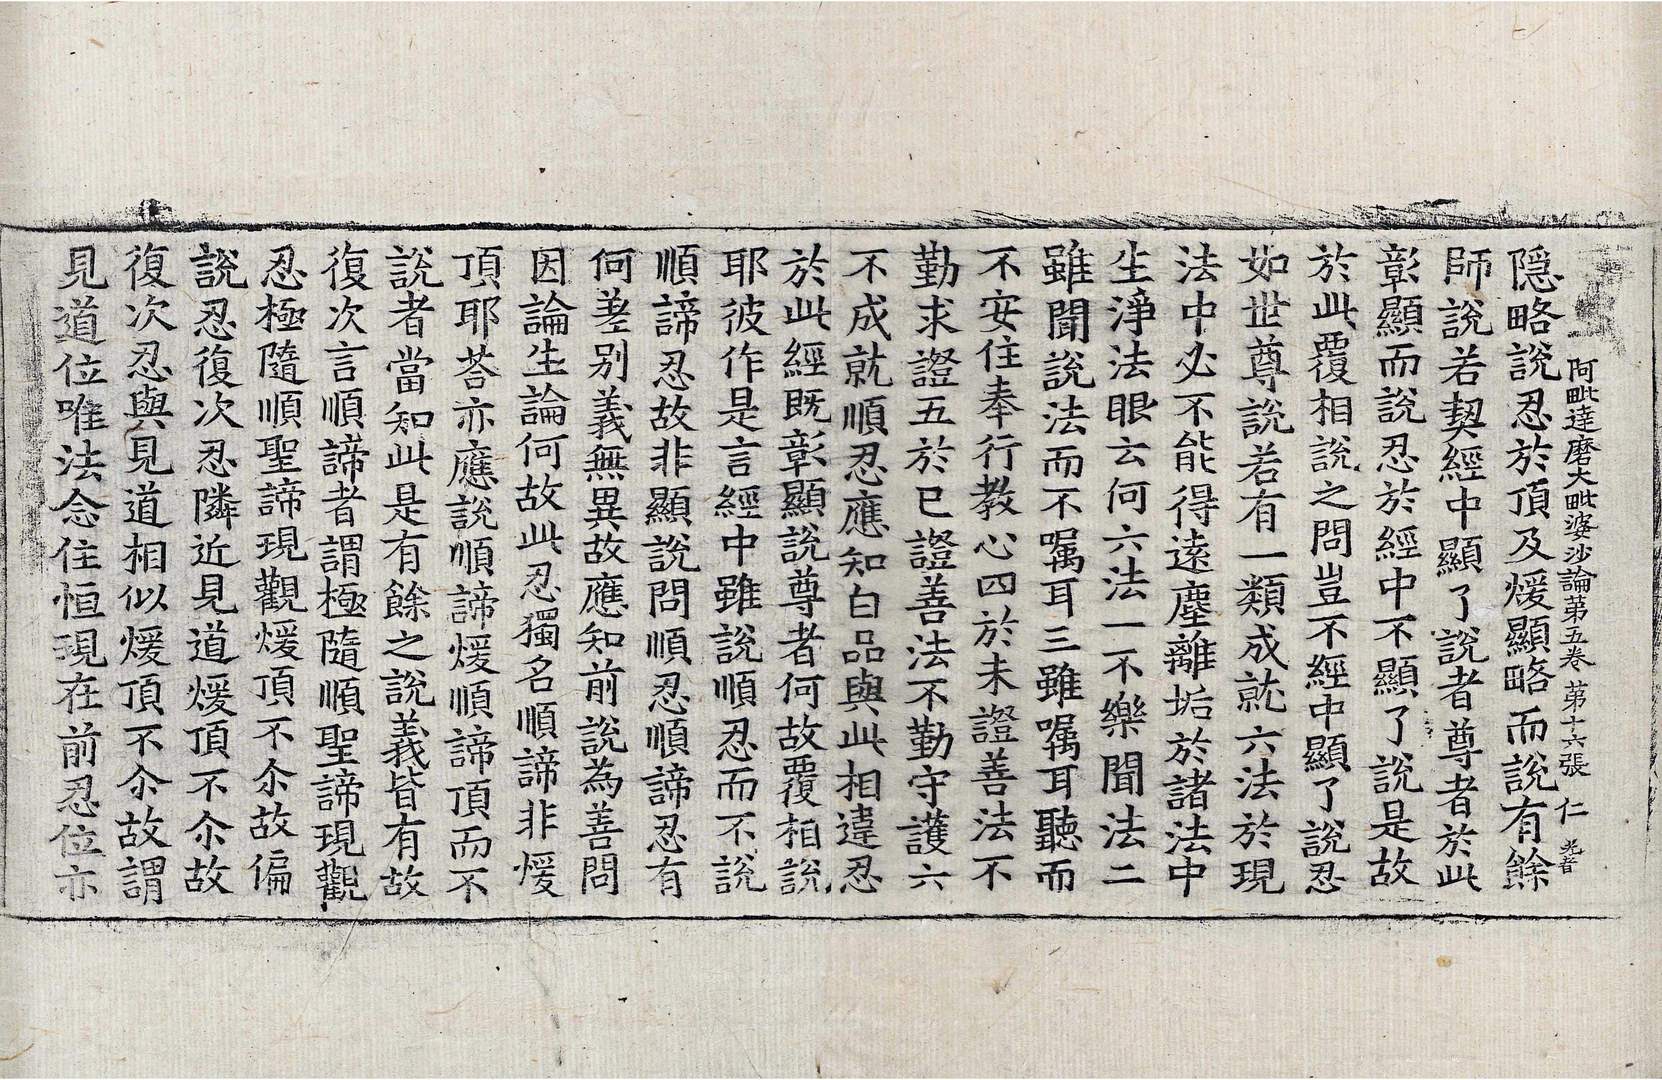 阿毗達磨大毗婆沙論第五卷 第十六張 仁
隱略說忍於頂及煖顯略而說有餘
師說若契經中顯了說者尊者於此
彰顯而說忍於經中不顯了說是故
於此覆相說之問豈不經中顯了說忍
如世尊說若有一類成就六法於現
法中必不能得遠塵離垢於諸法中
生淨法眼云何六法一不樂聞法二
雖聞說法而不囑耳三雖囑耳聽而
不安住奉行教心四於未證善法不
勤求證五於已證善法不勤守護六
不成就順忍應知白品與此相違忍
於此經既彰顯說尊者何故覆相說
耶彼作是言經中雖說順忍而不說
順諦忍故非顯說問順忍順諦忍有
何差別義無異故應知前說為善問
因論生論何故此忍獨名順諦非煖
頂耶荅亦應說順諦煖順諦頂而不
說者當知此是有餘之說義皆有故
復次言順諦者謂極隨順聖諦現觀
忍極隨順聖諦現觀煖頂不尒故偏
說忍復次忍隣近見道煖頂不尒故
復次忍與見道相似煖頂不尒故謂
見道位唯法念住恒現在前忍位亦